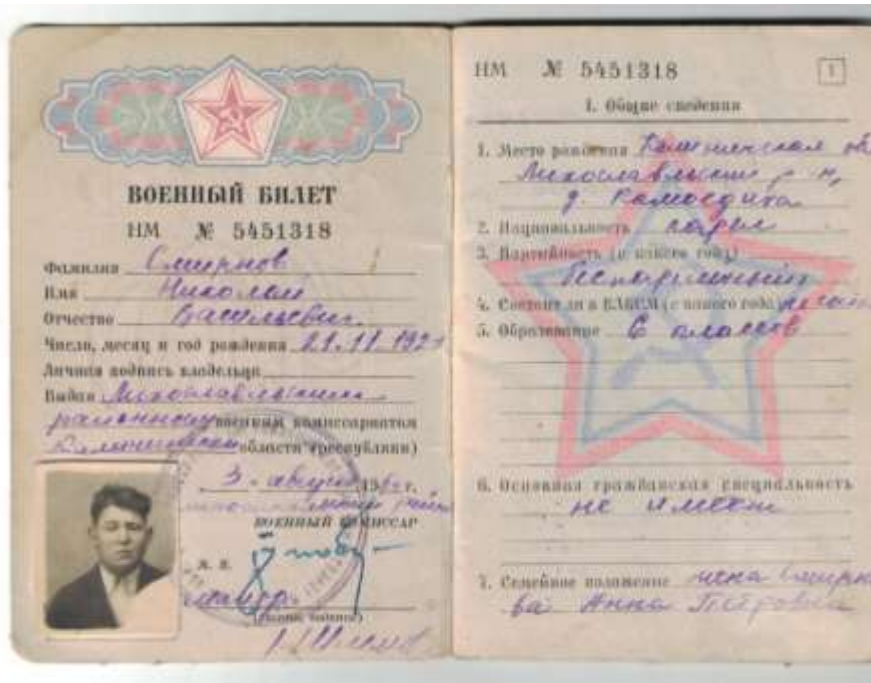 ВОЕННЫЙ БИЛЕТ
НМ № 5451318
Фамилия Смирнов
Имя Николай
Отчество Васильевич
Число, месяц и год рождения 21.11.1921
Личная подпись владельца
Выдан Лихославльским
районным военным комиссариатом
Калининской области (республики)
3 августа 196 г.
ВОЕННЫЙ КОМИССАР
М. П.
майор
НМ № 5451318
1
I. Общие сведения
1. Место рождения Калининская об
Лихославльский р-н,
д.
2. Национальность
3. Партийность (с какого года)
беспартийный
4. Состоит ли в ВЛКСМ (с какого года)
5. Образование 6 классов
6. Основная гражданская специальность
не имеет
7. Семейное положение жена Смирно
ва Анна Петровна